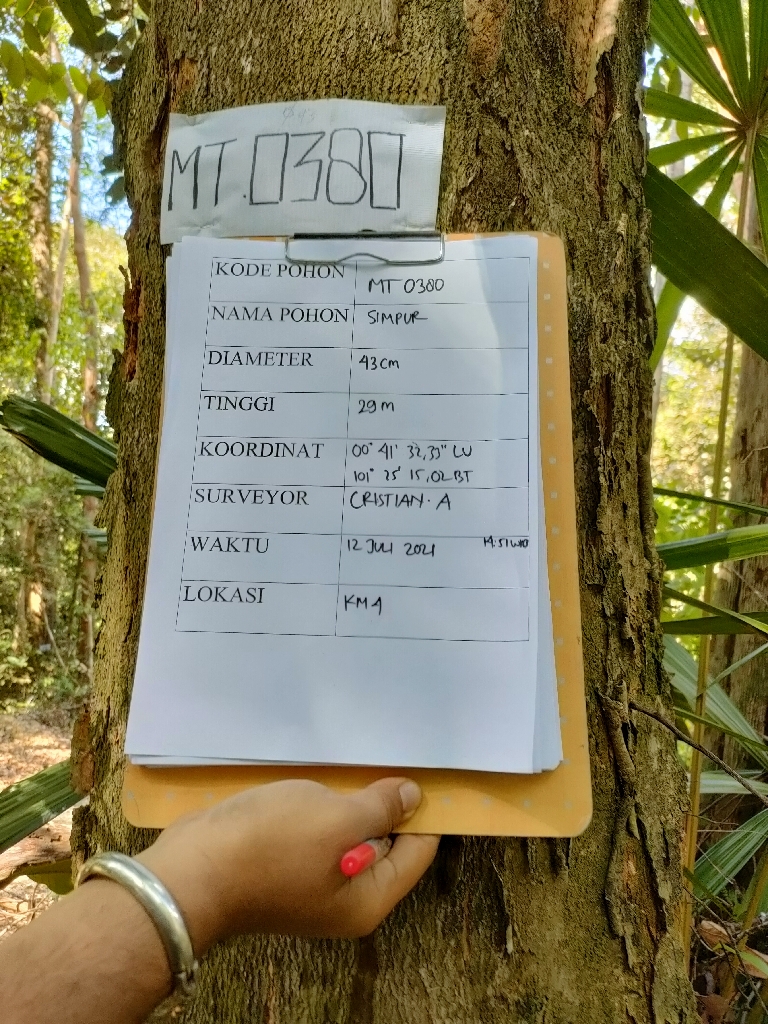 MT.0380
KODE POHON MT 0380
NAMA POHON SIMPUR
DIAMETER 43 cm
TINGGI 29 m
KOORDINAT 00° 41' 32,33" LU
101° 25' 15,02 BT
SURVEYOR CRISTIAN. A
WAKTU 12 JULI 2021 14:51 WIB
LOKASI KM 4